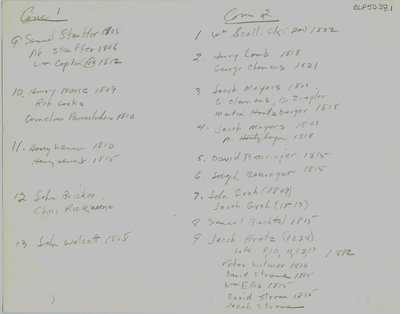 ELP50.38.1
Con 1
9. Samuel Stauffer 1805
Ab Stauffer 1806
Wm 1812
10. Henry 1809
Rob
Cornelius 1810
11. Henry 1810
Henry 1815
12 John Bricker
Chris Rickwane
13 John Wolcott 1808
Con 2
1. Wm Scollick (200) 1802
2. Henry Lamb 1818
George Clemens 1821
3. Jacob Meyers 1801
G. Clemens, D. Ziegler
Martin 1815
4. Jacob Meyers 1801
M. 1818
5. David Bearinger 1815
6. Joseph Bearinger 1815
7. John Groh (1809)
Sarah Groh (1813)
8 Samuel Bechtel 1815
9 Jacob Bretz (1024)
Lots 9, 10, 11, 1812
Peter Witmer 1810
David Strome 1815
Wm Ellis 1815
David Strom 1815
Jacob Strome